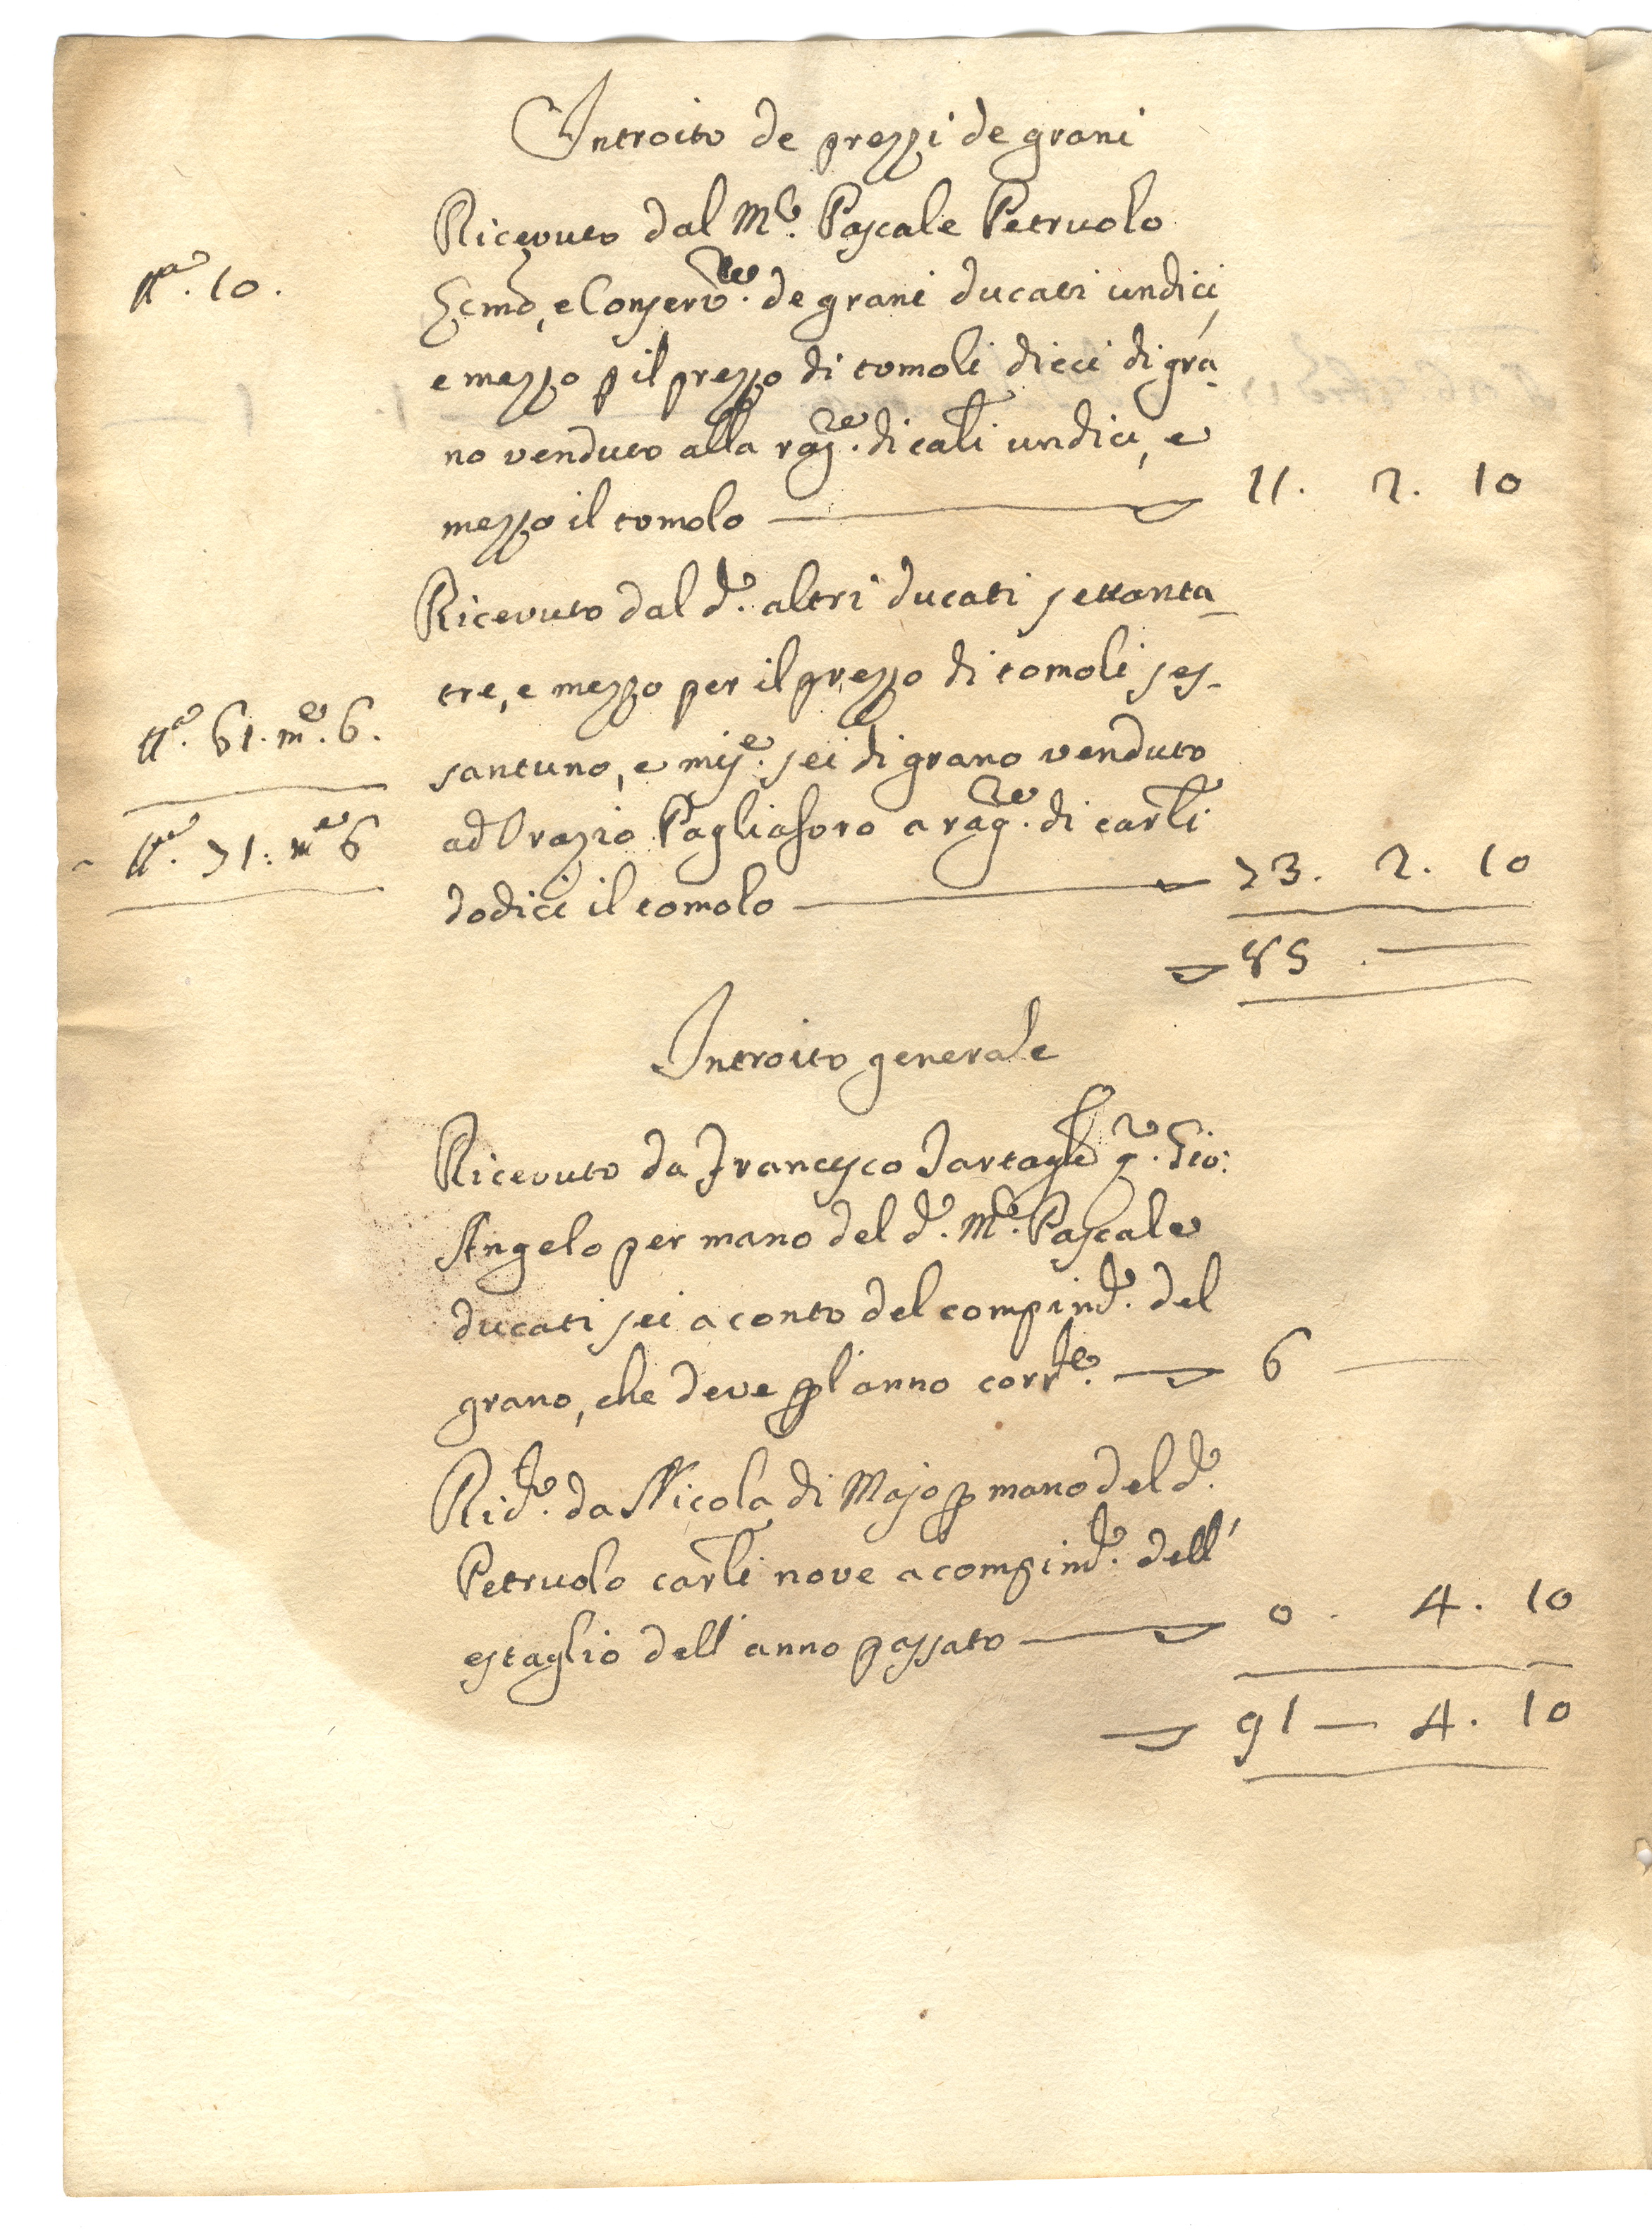 Introito de prezzi de grani
Ricevuto dal M.º Pascale Petruolo
tt.ª 10.
Ecmõ, e Conserv.re de grani ducati undici,
e mezzo p il prezzo di tomoli dieci di gra-
no venduto alla rag.ne di carli undici, e
mezzo il tomolo 11. 2. 10
Ricevuto dal d.º altri ducati settanta-
tre, e mezzo per il prezzo di tomoli ses-
tt.ª 61. m.e 6.
santuno, e mis.e sei di grano venduto
ad Orazio Pagliaforo a rag.ne di carli
tt.ª 71: m.e 6
dodici il tomolo 73. 2. 10
85 . —
Introito generale
Ricevuto da Francesco Tartagl q.m Gio:
Angelo per mano del d.º M.º Pascale
ducati sei a conto del compim.to del
grano, che deve p l'anno corr.te 6 —
Rid.º da Nicola di Majo p mano del d.º
Petruolo carli nove a compim.to dell'
estaglio dell'anno passato 0. 4. 10
91 — 4. 10